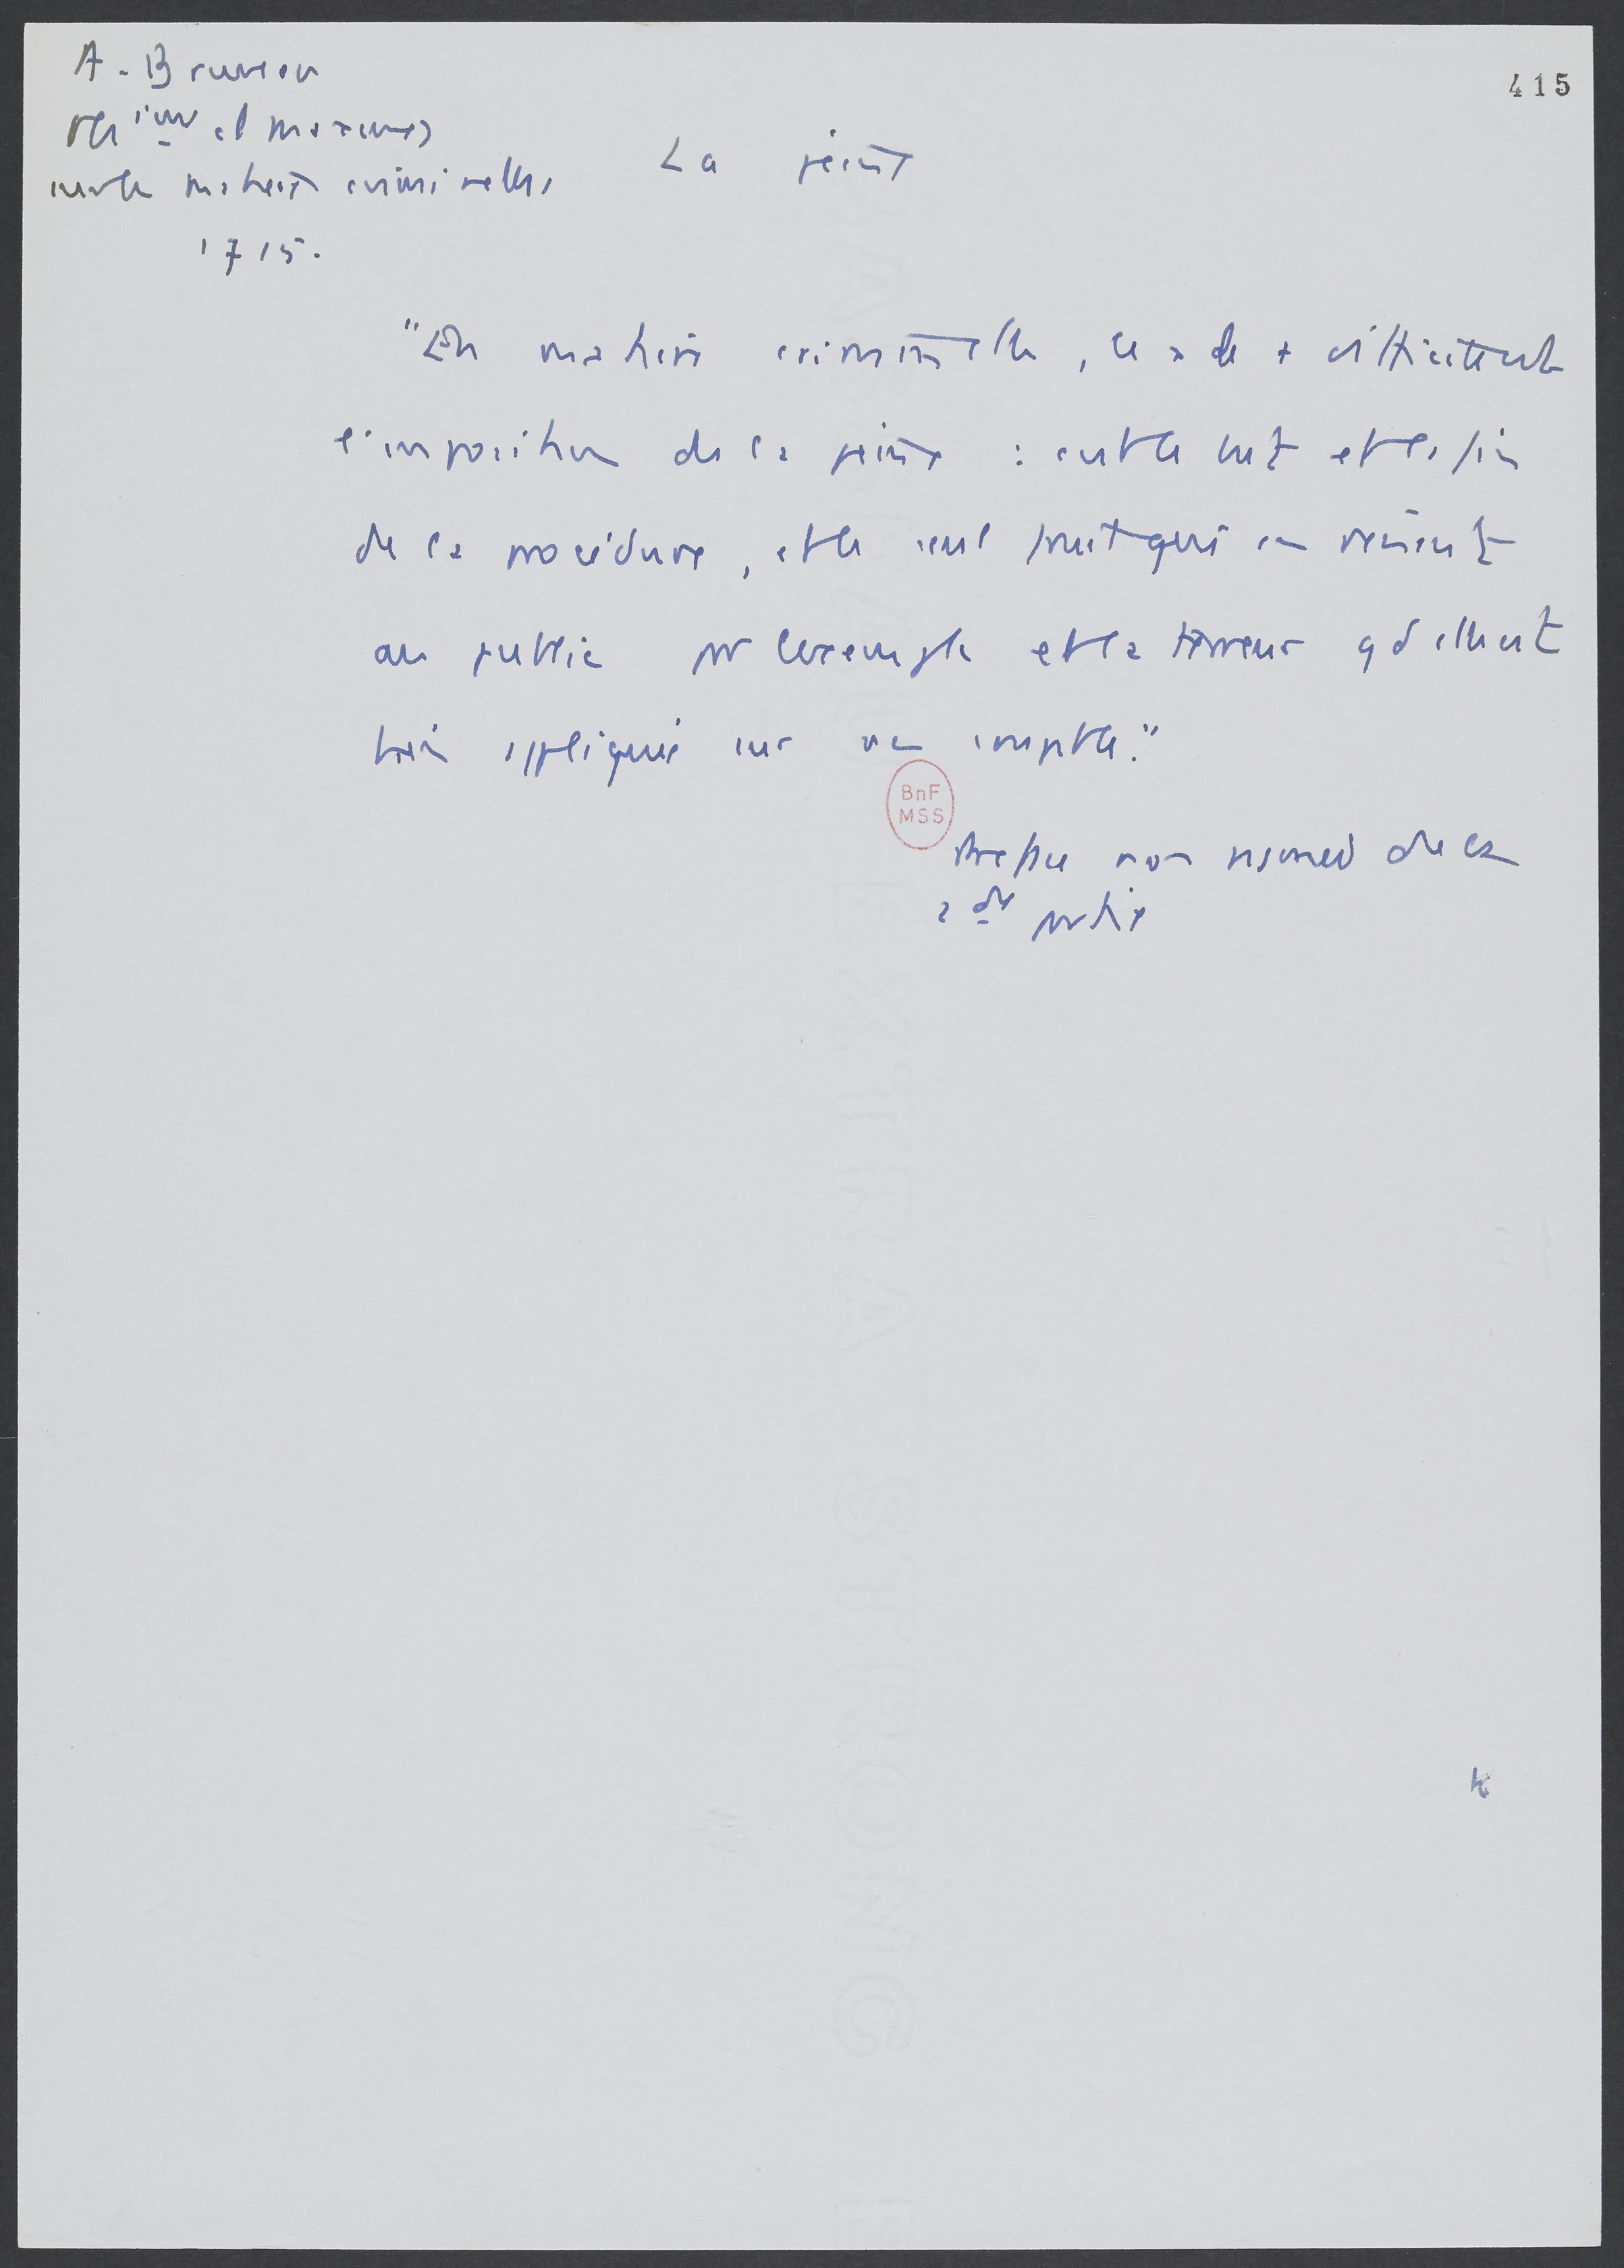 A. Bruneau
Obs ions et maximes
sur les matières criminelles,
1715.
415
La peine
"En matière criminelle, ce x de + difficile est
l'imposition de la peine : c'est le but et la fin
de la procédure, et le seul fruit qui en revient
au public pr l'exemple et la terreur qd elle est
bien appliquée sur un coupable."
BnF
MSS
Préface non numér de la
2de partie